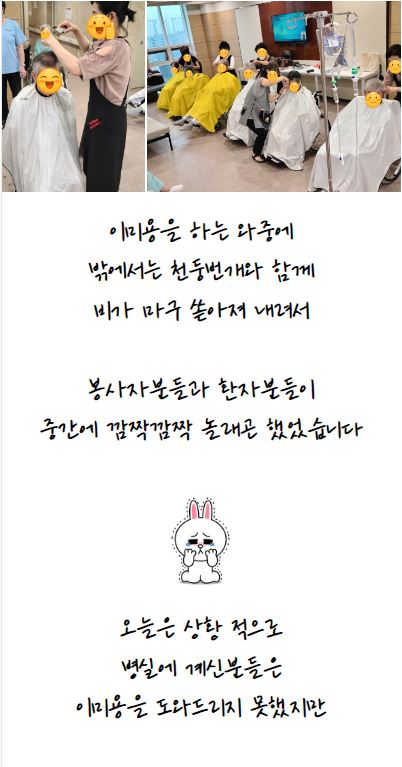 이미용을 하는 와중에
밖에서는 천둥번개와 함께
비가 마구 쏟아져 내려서
봉사자분들과 환자분들이
중간에 깜짝깜짝 놀래곤 했었습니다
오늘은 상황 적으로
병실에 계신분들은
이미용을 도와드리지 못했지만